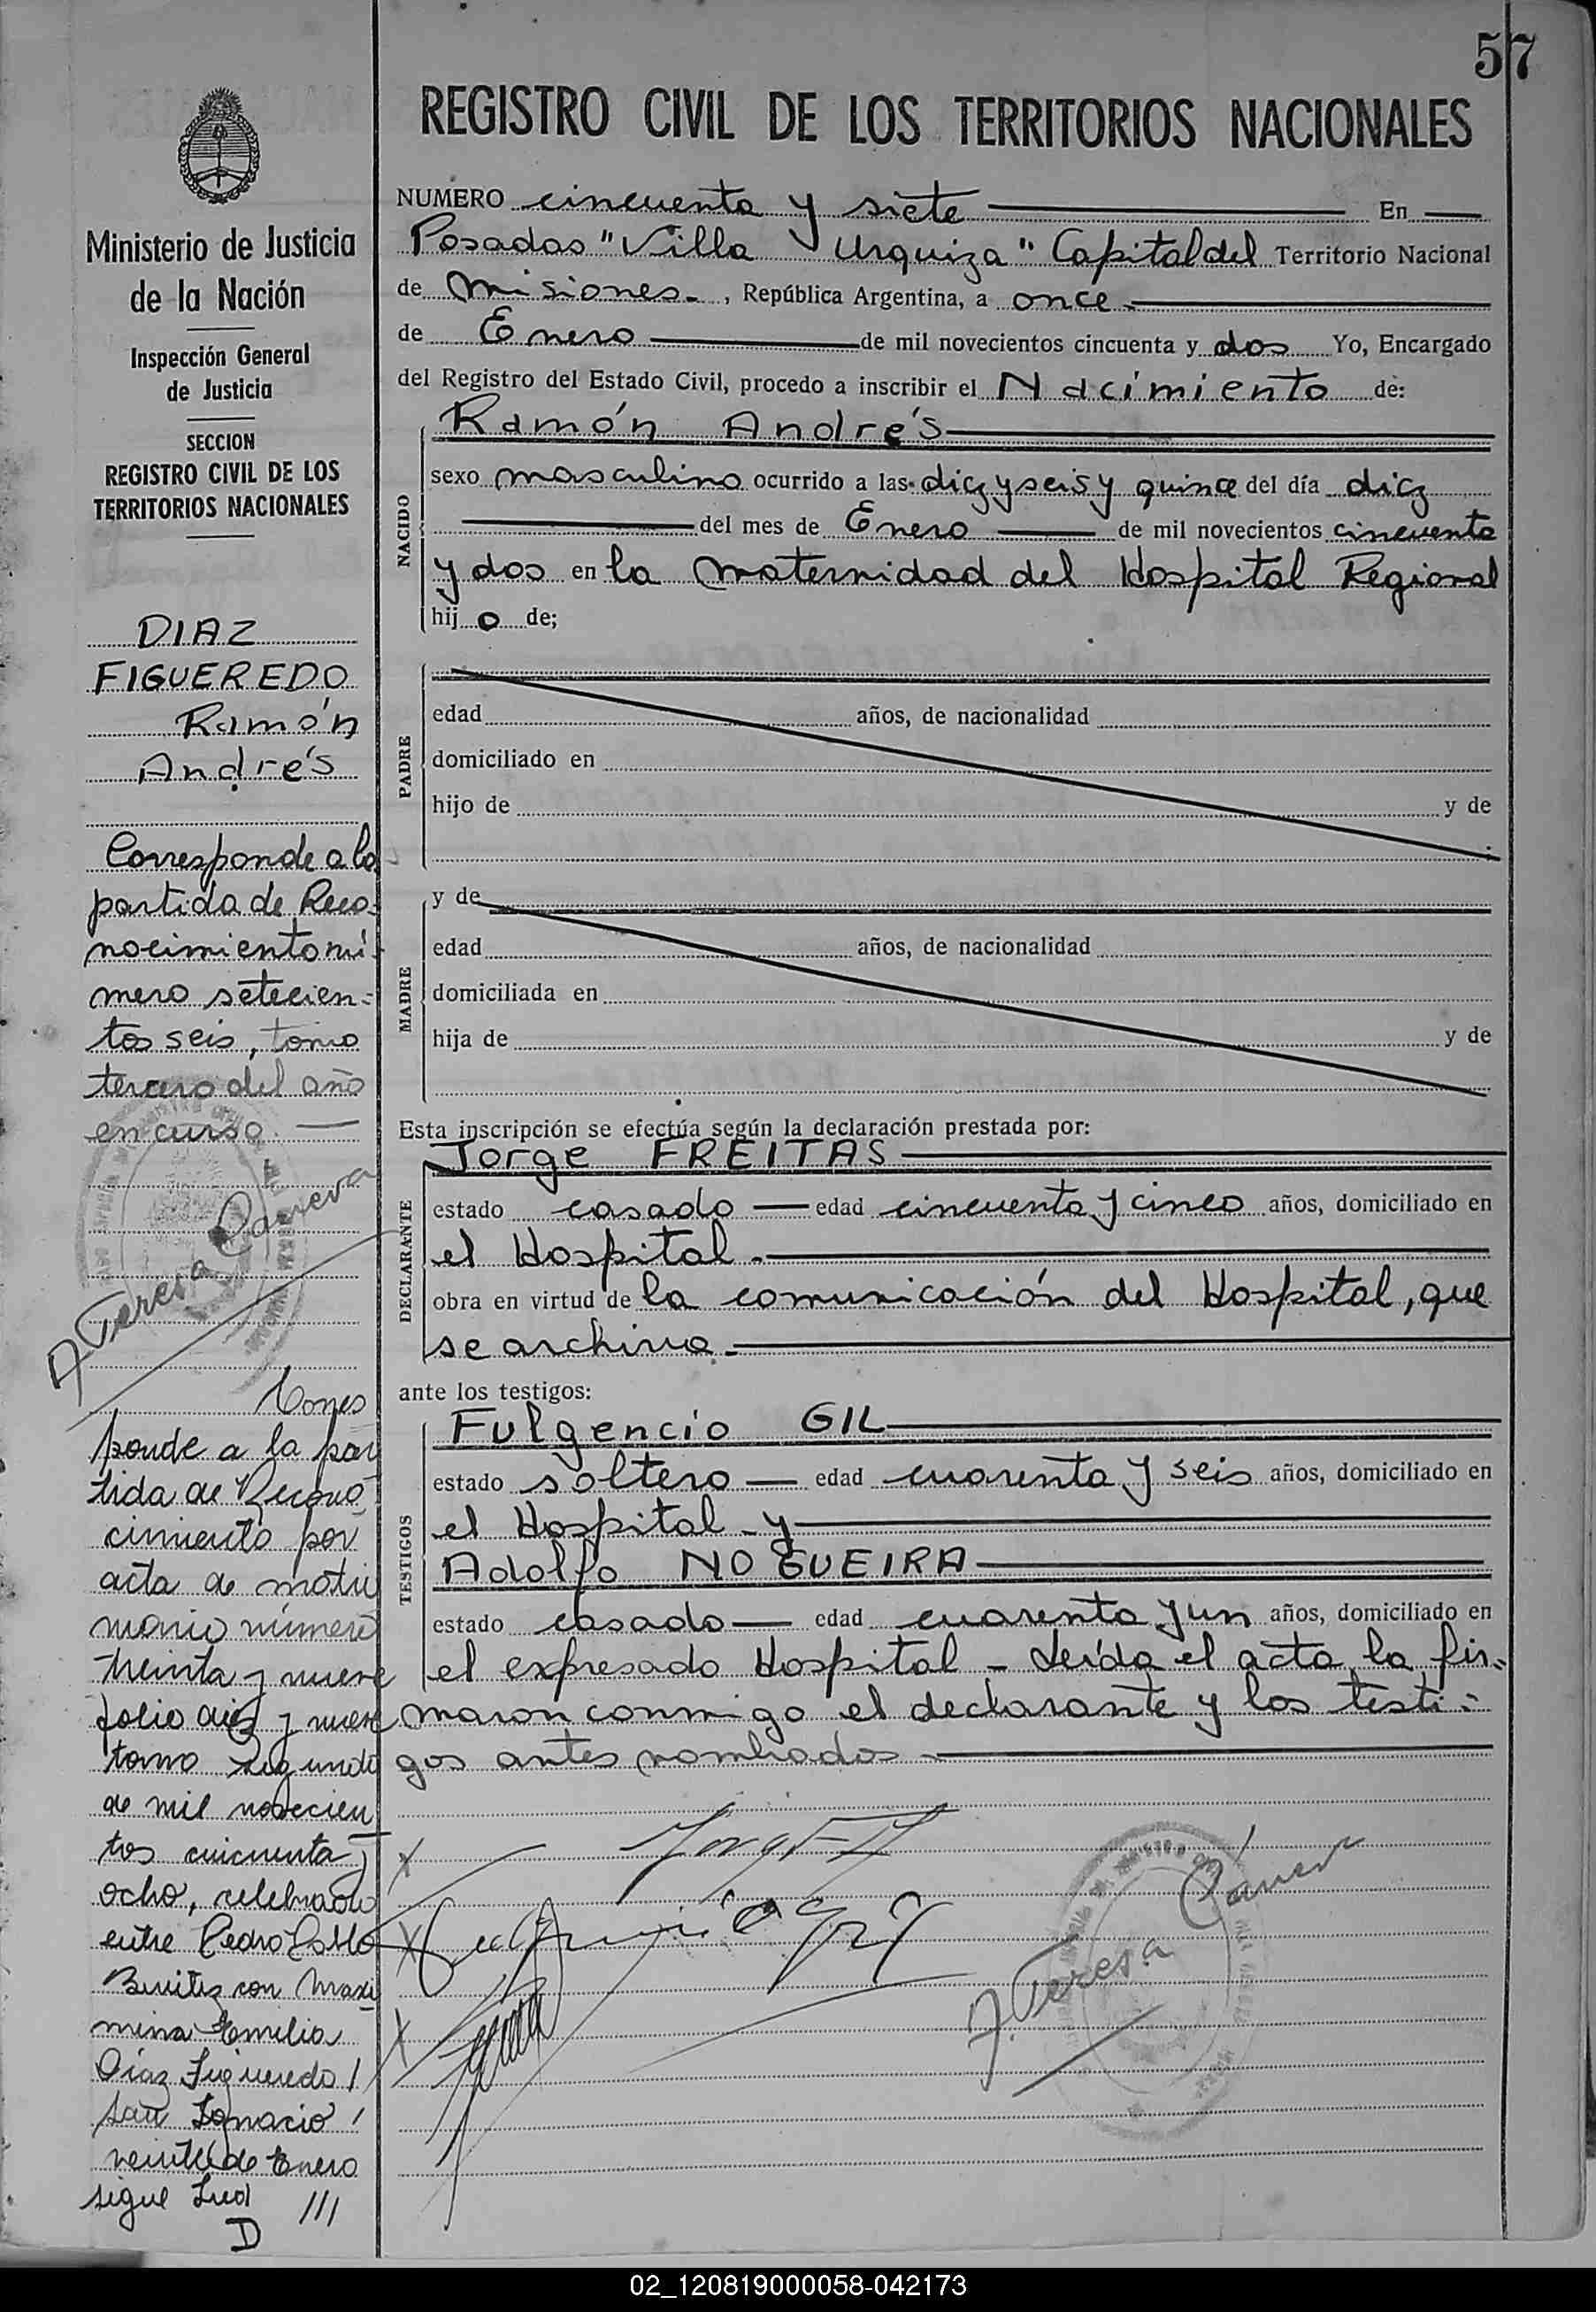 57
REGISTRO CIVIL DE LOS TERRITORIOS NACIONALES
NUMERO cincuenta y siete En
Posadas "Villa Urquiza" Capital del Territorio Nacional
de Misiones.-, República Argentina, a once.-
de Enero de mil novecientos cincuenta y dos Yo, Encargado
del Registro del Estado Civil, procedo a inscribir el Nacimiento de:
Ramón Andrés
NACIDO
sexo masculino ocurrido a las diez y seis y quince del día diez
del mes de Enero de mil novecientos cincuenta
y dos en la Maternidad del Hospital Regional
hijo de;
PADRE
edad años, de nacionalidad
domiciliado en
hijo de y de
MADRE
y de
edad años, de nacionalidad
domiciliada en
hija de y de
Esta inscripción se efectúa según la declaración prestada por:
DECLARANTE
Jorge FREITAS
estado casado edad cincuenta y cinco años, domiciliado en
el Hospital.-
obra en virtud de la comunicación del Hospital, que
se archiva.-
ante los testigos:
TESTIGOS
Fulgencio GIL
estado soltero edad cuarenta y seis años, domiciliado en
el Hospital - y
Adolfo NOGUEIRA
estado casado edad cuarenta y un años, domiciliado en
el expresado Hospital - Leída el acta, la fir-
maron conmigo el declarante y los testi-
gos antes nombrados -
A. Teresa
Ministerio de Justicia
de la Nación
Inspección General
de Justicia
SECCION
REGISTRO CIVIL DE LOS
TERRITORIOS NACIONALES
DIAZ
FIGUEREDO
Ramón
Andrés
Corresponde a la
partida de Reco-
nocimiento nú-
mero setecien-
tos seis, tomo
tercero del año
en curso. -
A. Teresa
Corres
ponde a la par
tida de Recono-
cimiento por
acta de matri
monio número
treinta y nueve
folio diez y nueve
tomo segundo
de mil novecien
tos cincuenta y
ocho, celebrado
entre Pedro
Benitez con Maxi
mina Emilia
Díaz Figueredo /
San Ignacio /
veinte de Enero
sigue Ind ///
D
02_120819000058-042173